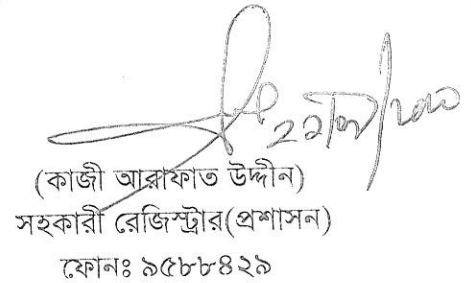 (কাজী আরাফাত উদ্দীন)
সহকারী রেজিস্ট্রার(প্রশাসন)
ফোনঃ ৯৫৮৮৪২৯